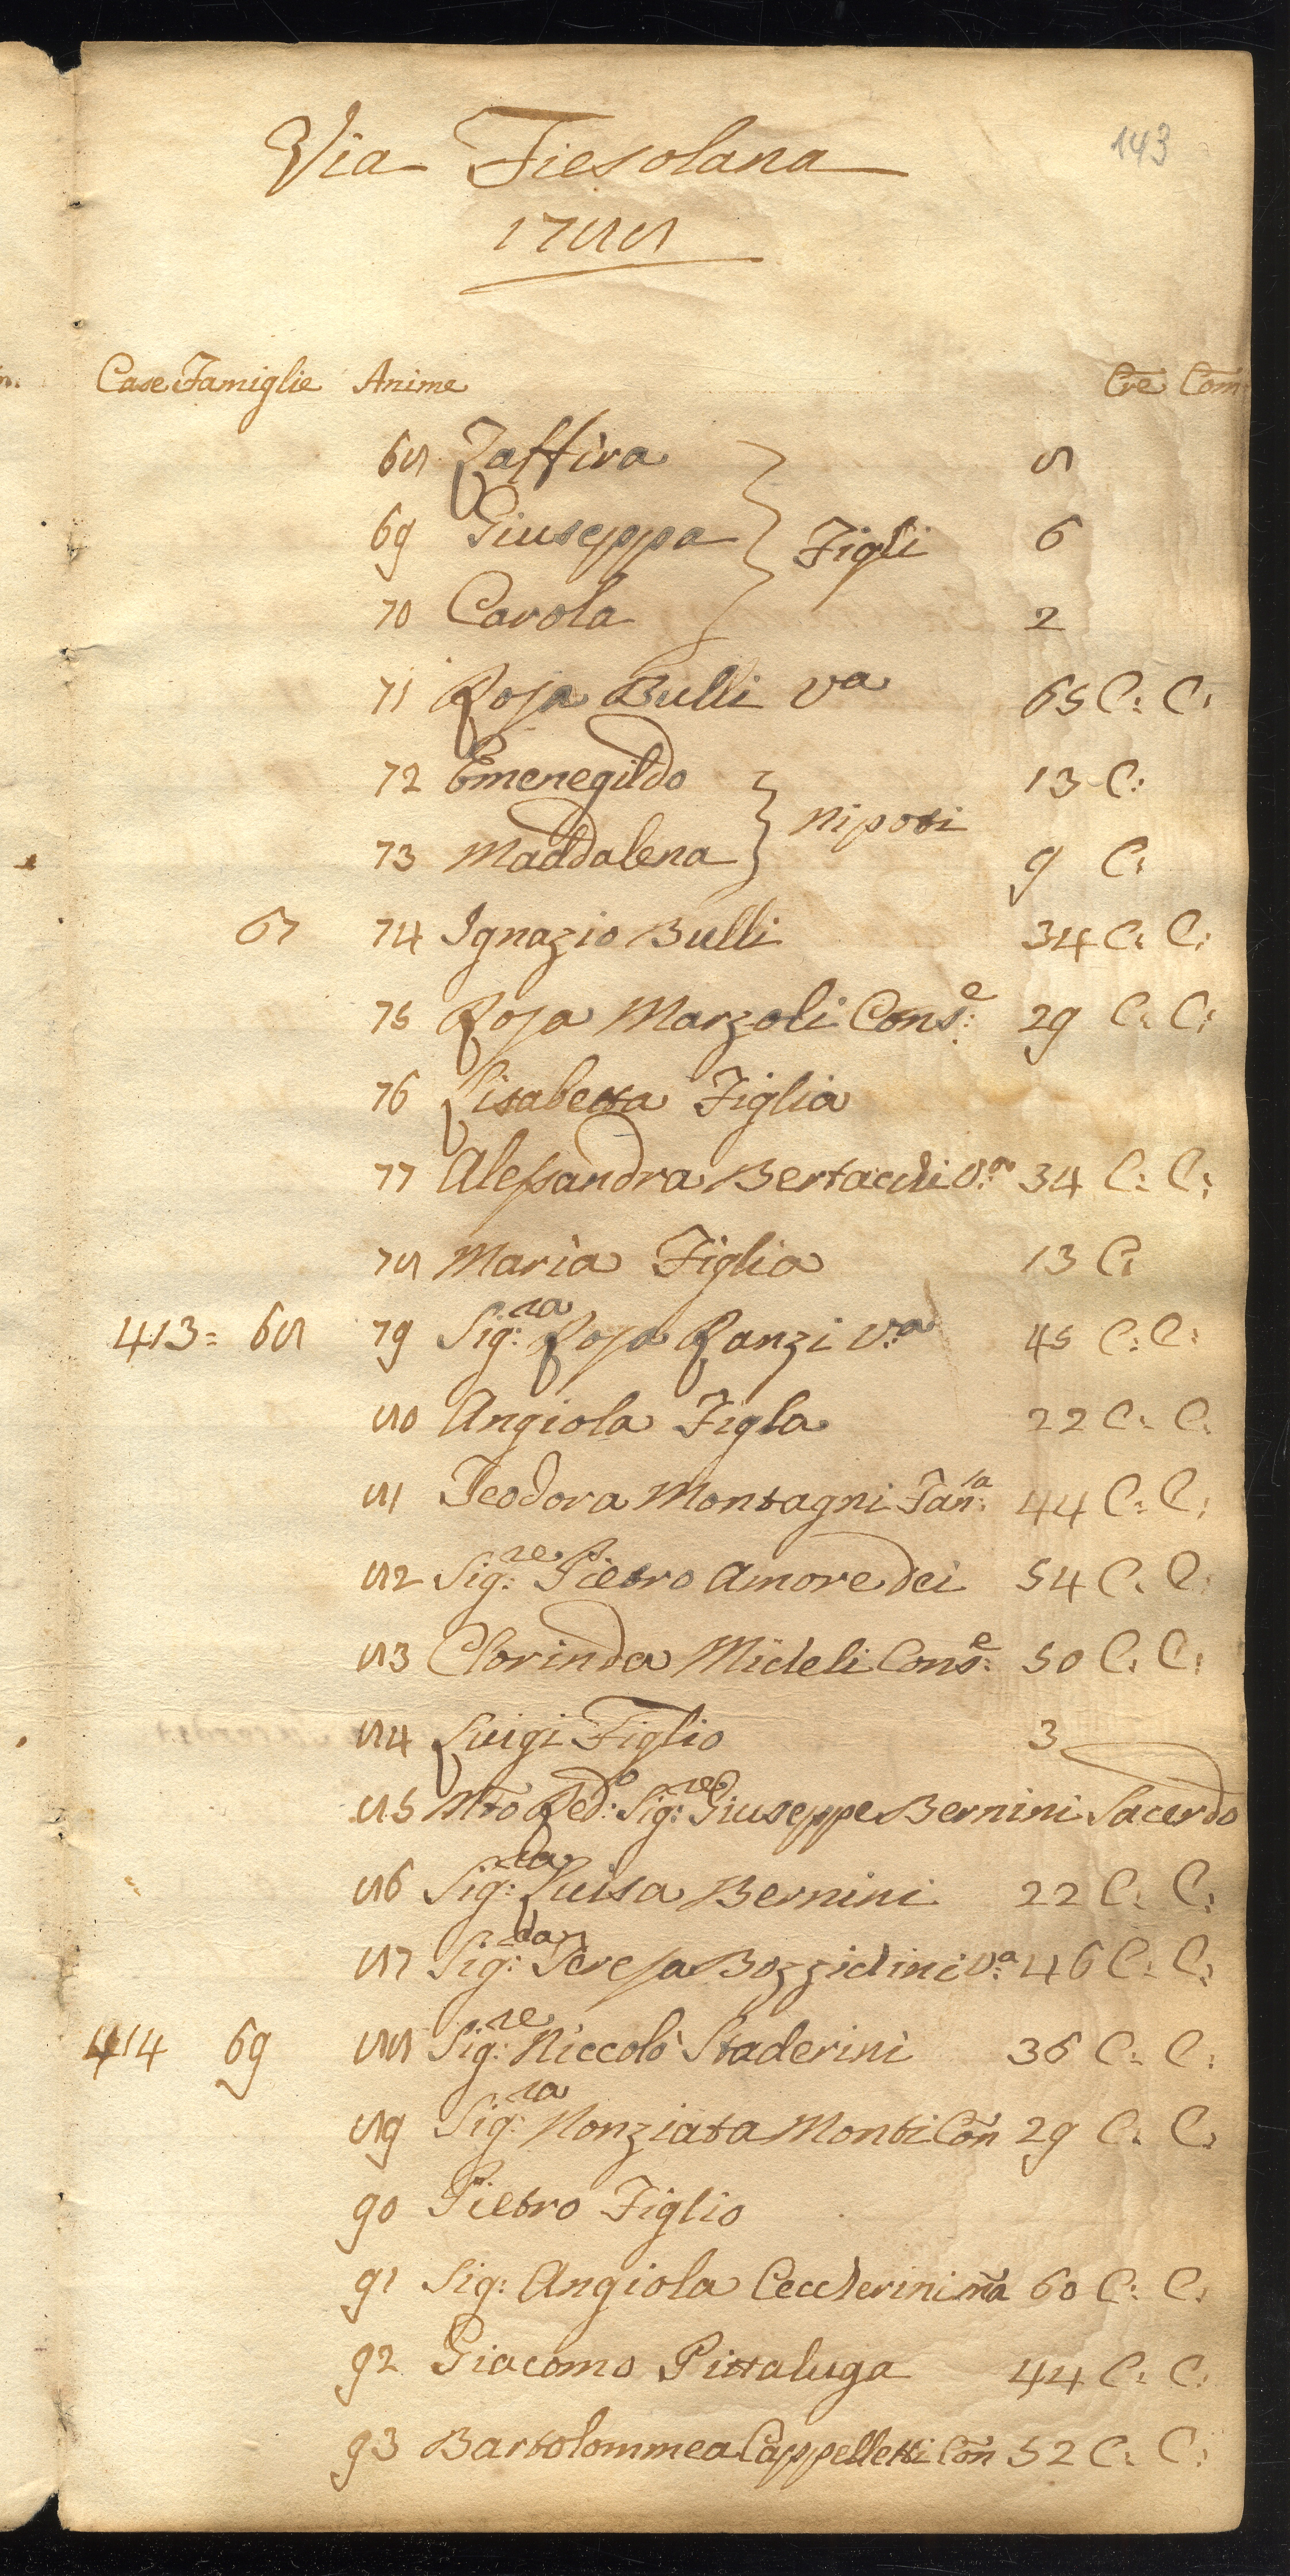 143
Via Fiesolana
1788
Case Famiglie Anime Cre Com
68 Zaffira 8
69 Giuseppa } Figli 6
70 Carola 2
71 Rosa Bulli Va 65 C: C:
72 Emenegildo 13 C:
} Nipoti
73 Maddalena 9 C:
67 74 Ignazio Bulli 34 C: C:
75 Rosa Marzoli Cons:e 29 C: C:
76 Lisabetta Figlia
77 Alessandra Bertacchi V:a 34 C: C:
78 Maria Figlia 13 C:
413= 68 79 Sig:ra Rosa Ranzi V:a 45 C: C:
80 Angiola Figla 22 C: C:
81 Teodora Montagni Fan:la 44 C: C:
82 Sig:re Pietro Amoredei 54 C: C:
83 Clorinda Micheli Cons:e 50 C: C:
84 Luigi Figlio 3
85 Mto Red:o Sig:re Giuseppe Bernini Sacerdo
86 Sig:ra Luisa Bernini 22 C: C:
87 Sig:ra Teresa Bozzichini V:a 46 C: C:
414 69 88 Sig:re Niccolò Staderini 36 C: C:
89 Sig:ra Nonziata Monti Con 29 C: C:
90 Pietro Figlio
91 Sig: Angiola Ceccherini ma 60 C: C:
92 Giacomo Pittaluga 44 C: C:
93 Bartolommea Cappelletti Con 52 C: C: